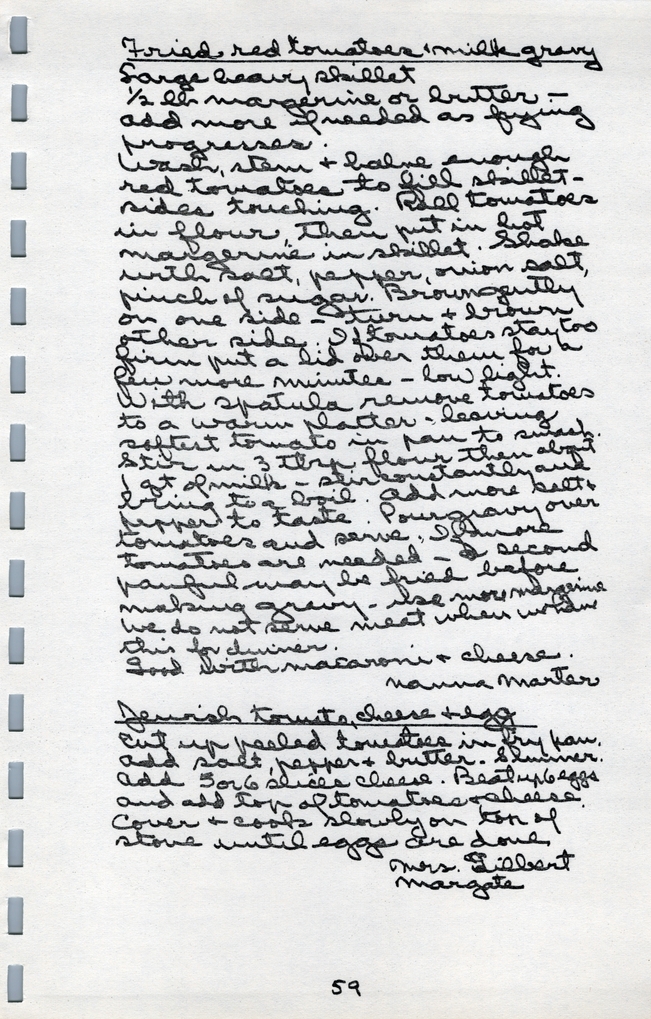 Fried red tomatoes & milk gravy
Large heavy skillet
1/2 lb margerine or butter -
add more if needed as frying
progresses.
Wash, stem + halve enough
red tomatoes to fill skillet -
sides touching. Roll tomatoes
in flour, then put in hot
margerine in skillet. Shake
with salt, pepper, onion salt,
pinch of sugar. Brown gently
on one side - turn + brown
other side. If tomatoes stay too
firm put a lid over them for a
few more minutes - low light.
With spatula remove tomatoes
to a warm platter - leaving
softest tomato in pan to smash.
Stir in 3 tbsp flour then about
1 qt of milk - stir constantly and
bring to a boil. Add more salt +
pepper to taste. Pour gravy over
tomatoes and serve. If more
tomatoes are needed - a second
panful may be fried before
making gravy - use more margerine
We do not serve meat when we have
this for dinner.
Good with macaroni + cheese.
Nanna Marter
Jewish tomato, cheese + egg
Cut up peeled tomatoes in fry pan.
Add salt, pepper + butter. Simmer.
Add 5 or 6 slices cheese. Beat up 6 eggs
and add top of tomatoes + cheese.
Cover + cook slowly on top of
stove until eggs are done.
Mrs. Gilbert
Margate
59